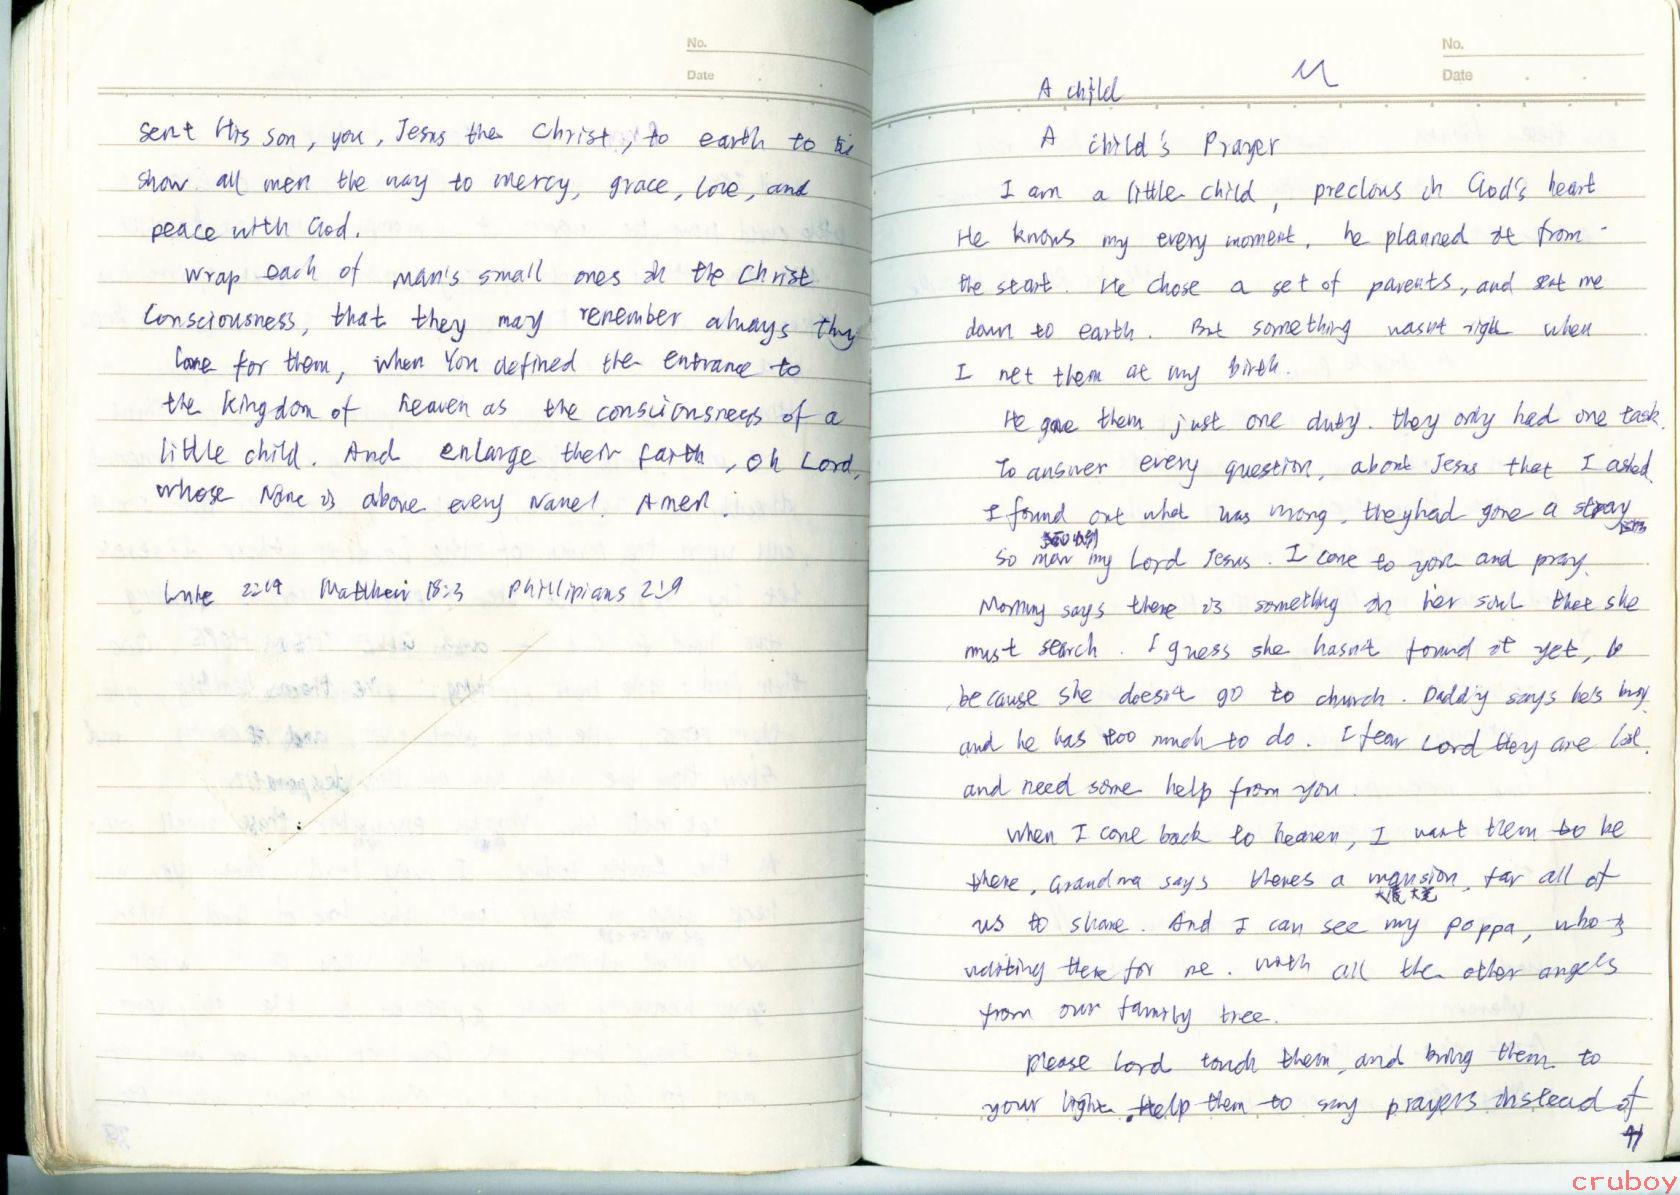 No.
Date
sent His son, you, Jesus the Christ, to earth to
show all men the way to mercy, grace, love, and
peace with God.
Wrap each of man's small ones in the Christ
Consciousness, that they may remember always thy
love for them, when You defined the entrance to
the kingdom of heaven as the consciousness of a
little child. And enlarge their faith, oh Lord,
whose Name is above every Name! Amen.
Luke 22:19 Matthew 18:3 Phillipians 2:9
No.
Date
A child
A child's Prayer
I am a little child, precious in God's heart
He knows my every moment, he planned it from
the start. He chose a set of parents, and sent me
down to earth. But something wasn't right when
I met them at my birth.
He gave them just one duty. they only had one task.
To answer every question, about Jesus that I asked.
I found out what was wrong, they had gone a stray
So now my Lord Jesus. I come to you and pray.
Mommy says there is something in her soul that she
must search. I guess she hasn't found it yet, b
because she doesn't go to church. Daddy says he's busy
and he has too much to do. I fear Lord they are lost.
and need some help from you.
When I come back to heaven, I want them to be
there, Grandma says theres a mansion, for all of
大厦 大宅
us to share. And I can see my poppa, who is
waiting there for me. with all the other angels
from our family tree.
please Lord touch them, and bring them to
your light. Help them to say prayers instead of
cruboy